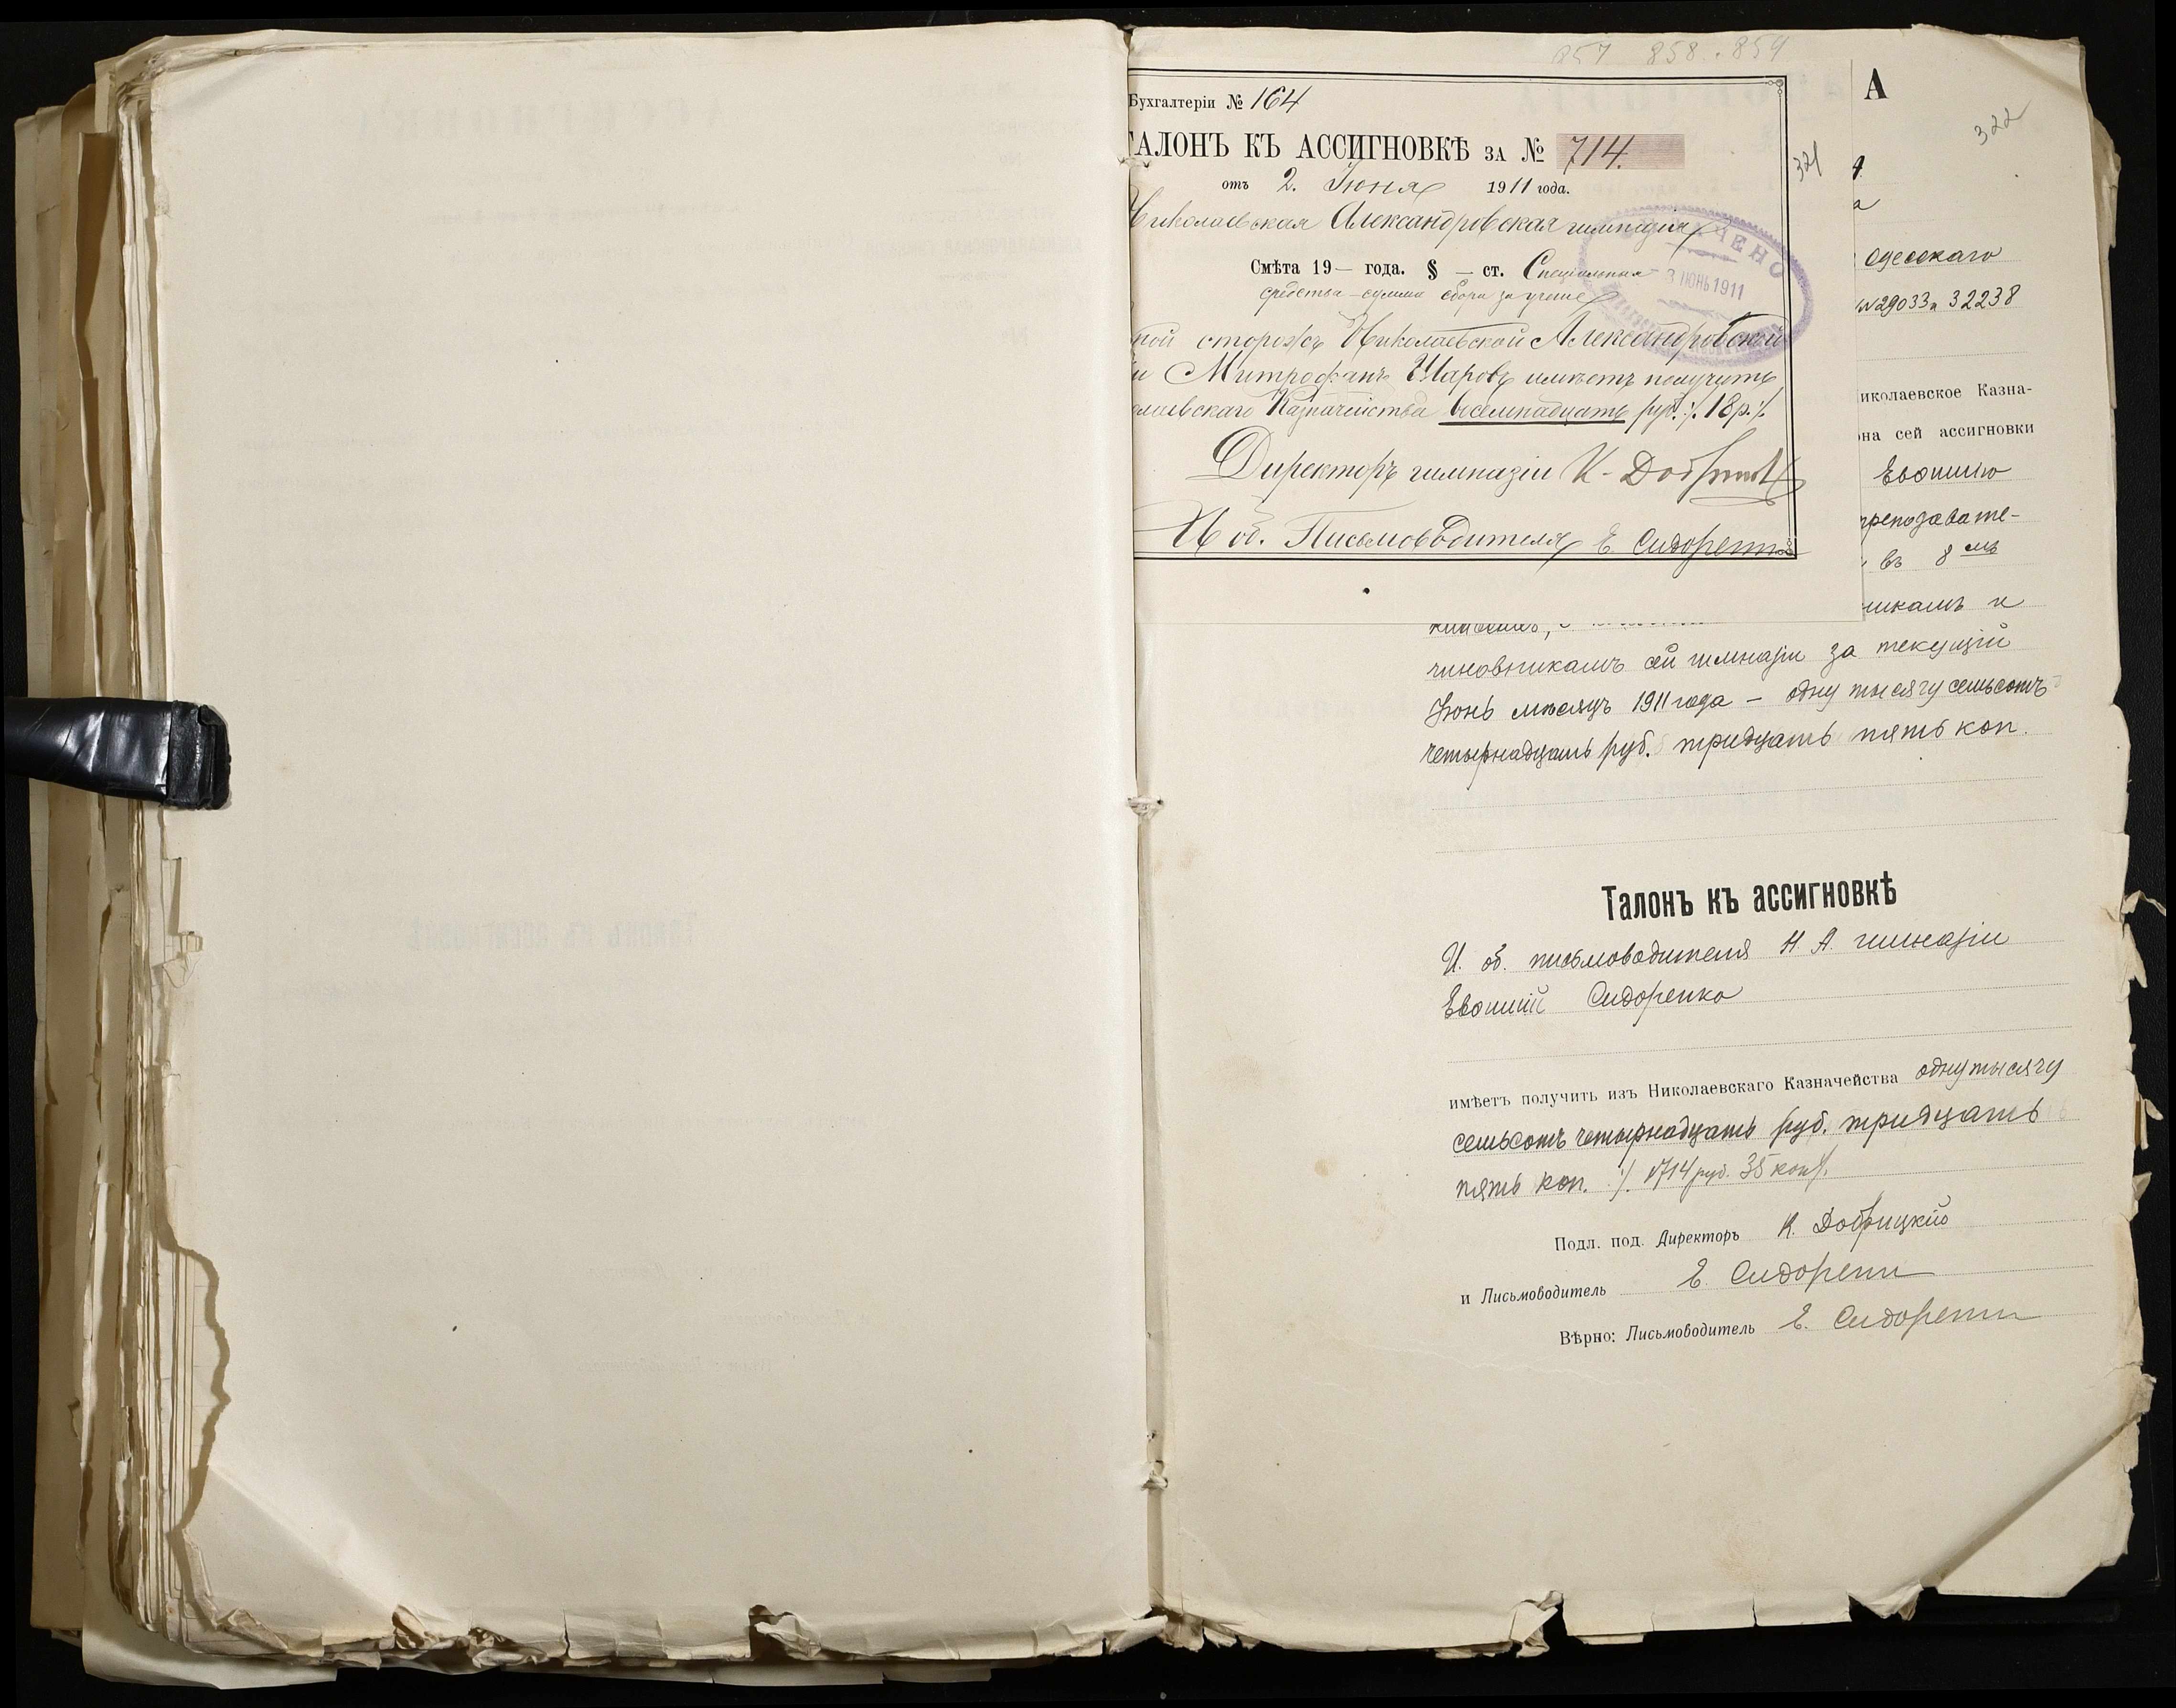 857 858. 859
Бухгалтеріи № 164
ТАЛОНЪ КЪ АССИГНОВКѢ ЗА № 714.
отъ 2. Іюня 1911 года.
Николаевская Александровская гимназія
Смѣта 19— года. § — ст. Спеціальныя
средства – сумма сбора за ученіе
3 ІЮНЬ 1911
сторожъ Николаевской Александровской
и Митрофанъ Шаровъ имѣетъ получить
Казначейства восемнадцать руб. ./. 18 р. ./.
Директоръ гимназіи К. Добр
И об. Письмоводителя Е. Сидорен
321
А
322
Одесскаго
№ 29033 и 32238
иколаевское Казна-
она сей ассигновки
Евѳимію
преподавате-
въ 8 мъ
никамъ и
чиновникамъ сей гимназіи за текущій
Іюнь мѣсяцъ 1911 года – одну тысячу семьсотъ
четырнадцать руб. тридцать пять коп.
Талонъ къ ассигновкѣ
И. об. письмоводителя Н. А. гимназіи
Евѳимій Сидоренко
имѣетъ получить изъ Николаевскаго Казначейства одну тысячу
семьсотъ четырнадцать руб. тридцать
пять коп. ./. 1714 руб. 35 коп ./.
Подл. под. Директоръ К. Добрицкій
и Письмоводитель Е. Сидорен
Вѣрно: Письмоводитель Е. Сидорен